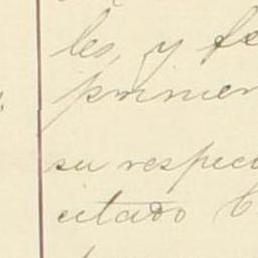 les, y fe
primer
su respec
citado C